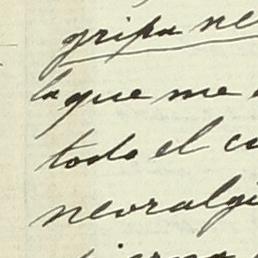 gripa ne
la que me
todo el c
nevralgi